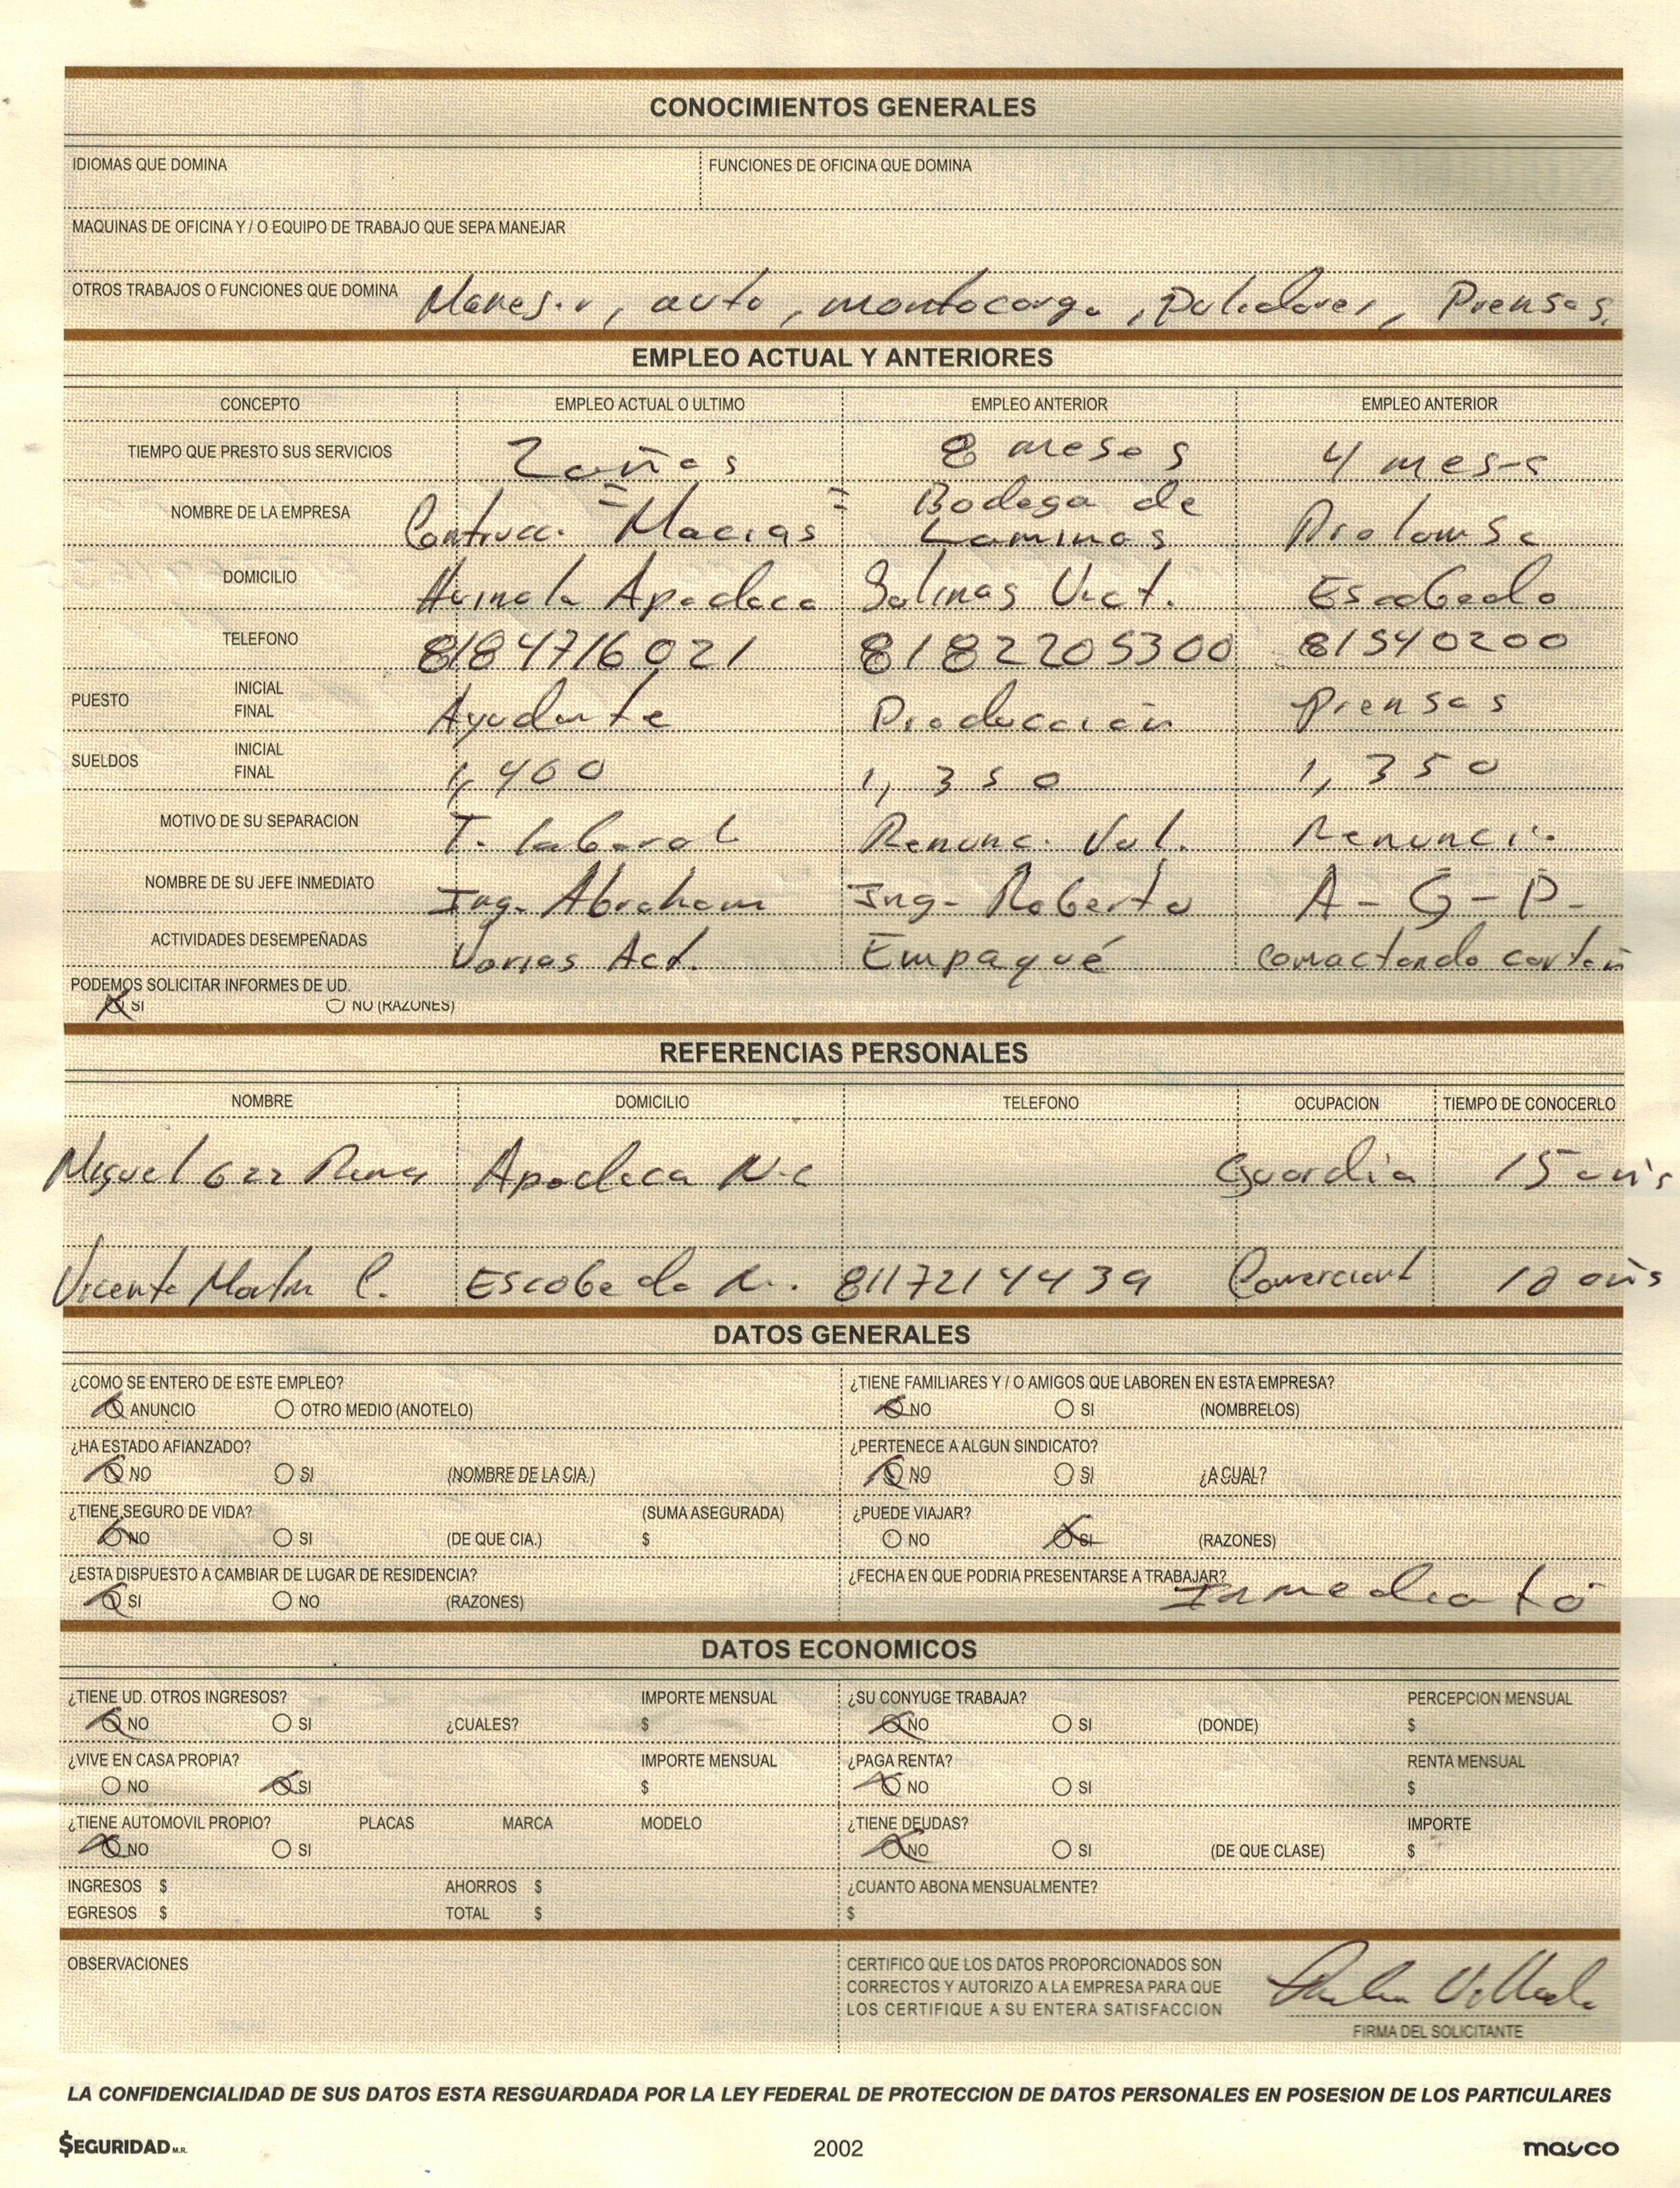 CONOCIMIENTOS GENERALES
IDIOMAS QUE DOMINA FUNCIONES DE OFICINA QUE DOMINA
MAQUINAS DE OFICINA Y / O EQUIPO DE TRABAJO QUE SEPA MANEJAR
OTROS TRABAJOS O FUNCIONES QUE DOMINA auto, montocarga, Pulidores, Prensas,
EMPLEO ACTUAL Y ANTERIORES
CONCEPTO EMPLEO ACTUAL O ULTIMO EMPLEO ANTERIOR EMPLEO ANTERIOR
TIEMPO QUE PRESTO SUS SERVICIOS 2 años 8 meses 4 meses
NOMBRE DE LA EMPRESA Contrucc. "Macias" Bodega de Laminas Prolamsa
DOMICILIO Huinala Apodaca Salinas Vict. Escobedo
TELEFONO 8184716021 8182205300 81540200
PUESTO INICIAL FINAL Ayudante Producción Prensas
SUELDOS INICIAL FINAL 1,400 1,350 1,350
MOTIVO DE SU SEPARACION T. laboral Renunc. Vol. Renuncia
NOMBRE DE SU JEFE INMEDIATO Ing. Abraham Ing- Roberto A - G - P -
ACTIVIDADES DESEMPEÑADAS Varias Act. Empaqué comactando carton
PODEMOS SOLICITAR INFORMES DE UD.
SI NO (RAZONES)
REFERENCIAS PERSONALES
NOMBRE DOMICILIO TELEFONO OCUPACION TIEMPO DE CONOCERLO
Miguel Gzz Apodaca N-L Guardia 15 años
Vicente Martin C. Escobedo N. 8117214439 Comerciant 10 años
DATOS GENERALES
¿COMO SE ENTERO DE ESTE EMPLEO? ¿TIENE FAMILIARES Y / O AMIGOS QUE LABOREN EN ESTA EMPRESA?
ANUNCIO OTRO MEDIO (ANOTELO) NO SI (NOMBRELOS)
¿HA ESTADO AFIANZADO? ¿PERTENECE A ALGUN SINDICATO?
NO SI (NOMBRE DE LA CIA.) NO SI ¿A CUAL?
¿TIENE SEGURO DE VIDA? (SUMA ASEGURADA) ¿PUEDE VIAJAR?
NO SI (DE QUE CIA.) $ NO SI (RAZONES)
¿ESTA DISPUESTO A CAMBIAR DE LUGAR DE RESIDENCIA? ¿FECHA EN QUE PODRIA PRESENTARSE A TRABAJAR? Inmediato
SI NO (RAZONES)
DATOS ECONOMICOS
¿TIENE UD. OTROS INGRESOS? IMPORTE MENSUAL ¿SU CONYUGE TRABAJA? PERCEPCION MENSUAL
NO SI ¿CUALES? $ NO SI (DONDE) $
¿VIVE EN CASA PROPIA? IMPORTE MENSUAL ¿PAGA RENTA? RENTA MENSUAL
NO SI $ NO SI $
¿TIENE AUTOMOVIL PROPIO? PLACAS MARCA MODELO ¿TIENE DEUDAS? IMPORTE
NO SI NO SI (DE QUE CLASE) $
INGRESOS $ AHORROS $ ¿CUANTO ABONA MENSUALMENTE?
EGRESOS $ TOTAL $ $
OBSERVACIONES CERTIFICO QUE LOS DATOS PROPORCIONADOS SON
CORRECTOS Y AUTORIZO A LA EMPRESA PARA QUE
LOS CERTIFIQUE A SU ENTERA SATISFACCION
FIRMA DEL SOLICITANTE
LA CONFIDENCIALIDAD DE SUS DATOS ESTA RESGUARDADA POR LA LEY FEDERAL DE PROTECCION DE DATOS PERSONALES EN POSESION DE LOS PARTICULARES
$EGURIDAD M.R. 2002 mayco